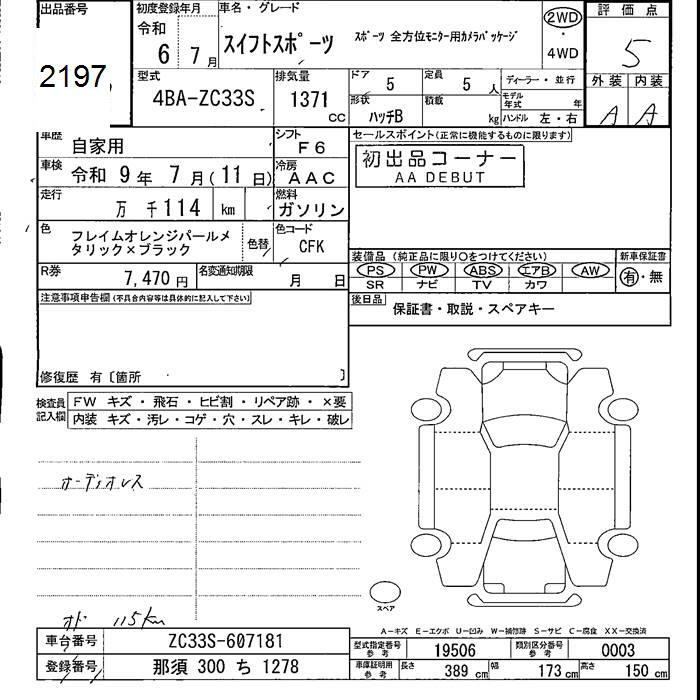 出品番号
2197
初度登録年月
令和 6 年 7 月
車名・グレード
スイフトスポーツ スポーツ 全方位モニター用カメラパッケージ
2WD
・
4WD
評価点
5
外装 内装
A A
型式
4BA-ZC33S
排気量
1371 CC
ドア 5
定員 5 人
形状 ハッチB
積載 kg
ディーラー・並行
モデル年式 年
ハンドル 左・右
車歴 自家用
シフト F6
車検 令和 9 年 7 月 (11 日)
冷房 AAC
走行 万 千114 km
燃料 ガソリン
色 フレイムオレンジパールメ
タリック×ブラック
色替
色コード CFK
R券 7,470 円
名変通知期限 月 日
セールスポイント(正常に機能するものに限ります)
初出品コーナー
AA DEBUT
装備品 (純正品に限り○をつけてください)
PS PW ABS エアB AW
SR ナビ TV カワ
新車保証書
有・無
後日品
保証書・取説・スペアキー
注意事項申告欄(不具合内容等は具体的に記入して下さい)
修復歴 有〔箇所 〕
検査員記入欄
FW キズ・飛石・ヒビ割・リペア跡・×要
内装 キズ・汚レ・コゲ・穴・スレ・キレ・破レ
オーディオレス
オド 115km
スペア
A―キズ E―エクボ U―凹み W―補修跡 S―サビ C―腐食 XX―交換済
車台番号 ZC33S-607181
登録番号 那須 300 ち 1278
型式指定番号参考 19506
類別区分番号参考 0003
車庫証明用参考 長さ 389 cm 幅 173 cm 高さ 150 cm